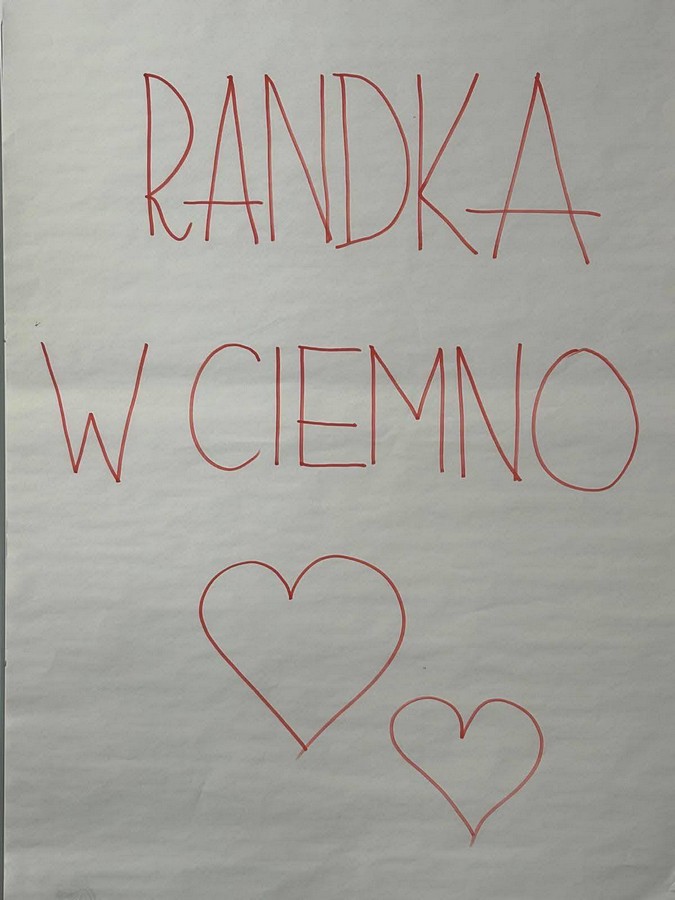 RANDKA
W CIEMNO